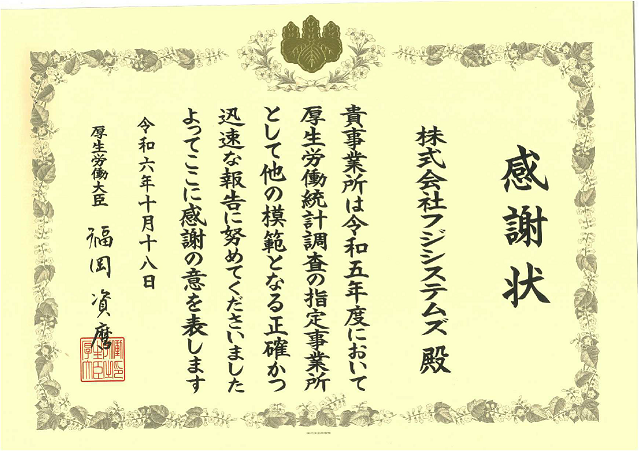 感謝状
株式会社フジシステムズ 殿
貴事業所は令和五年度において
厚生労働統計調査の指定事業所
として他の模範となる正確かつ
迅速な報告に努めてくださいました
よってここに感謝の意を表します
令和六年十月十八日
厚生労働大臣 福岡資麿